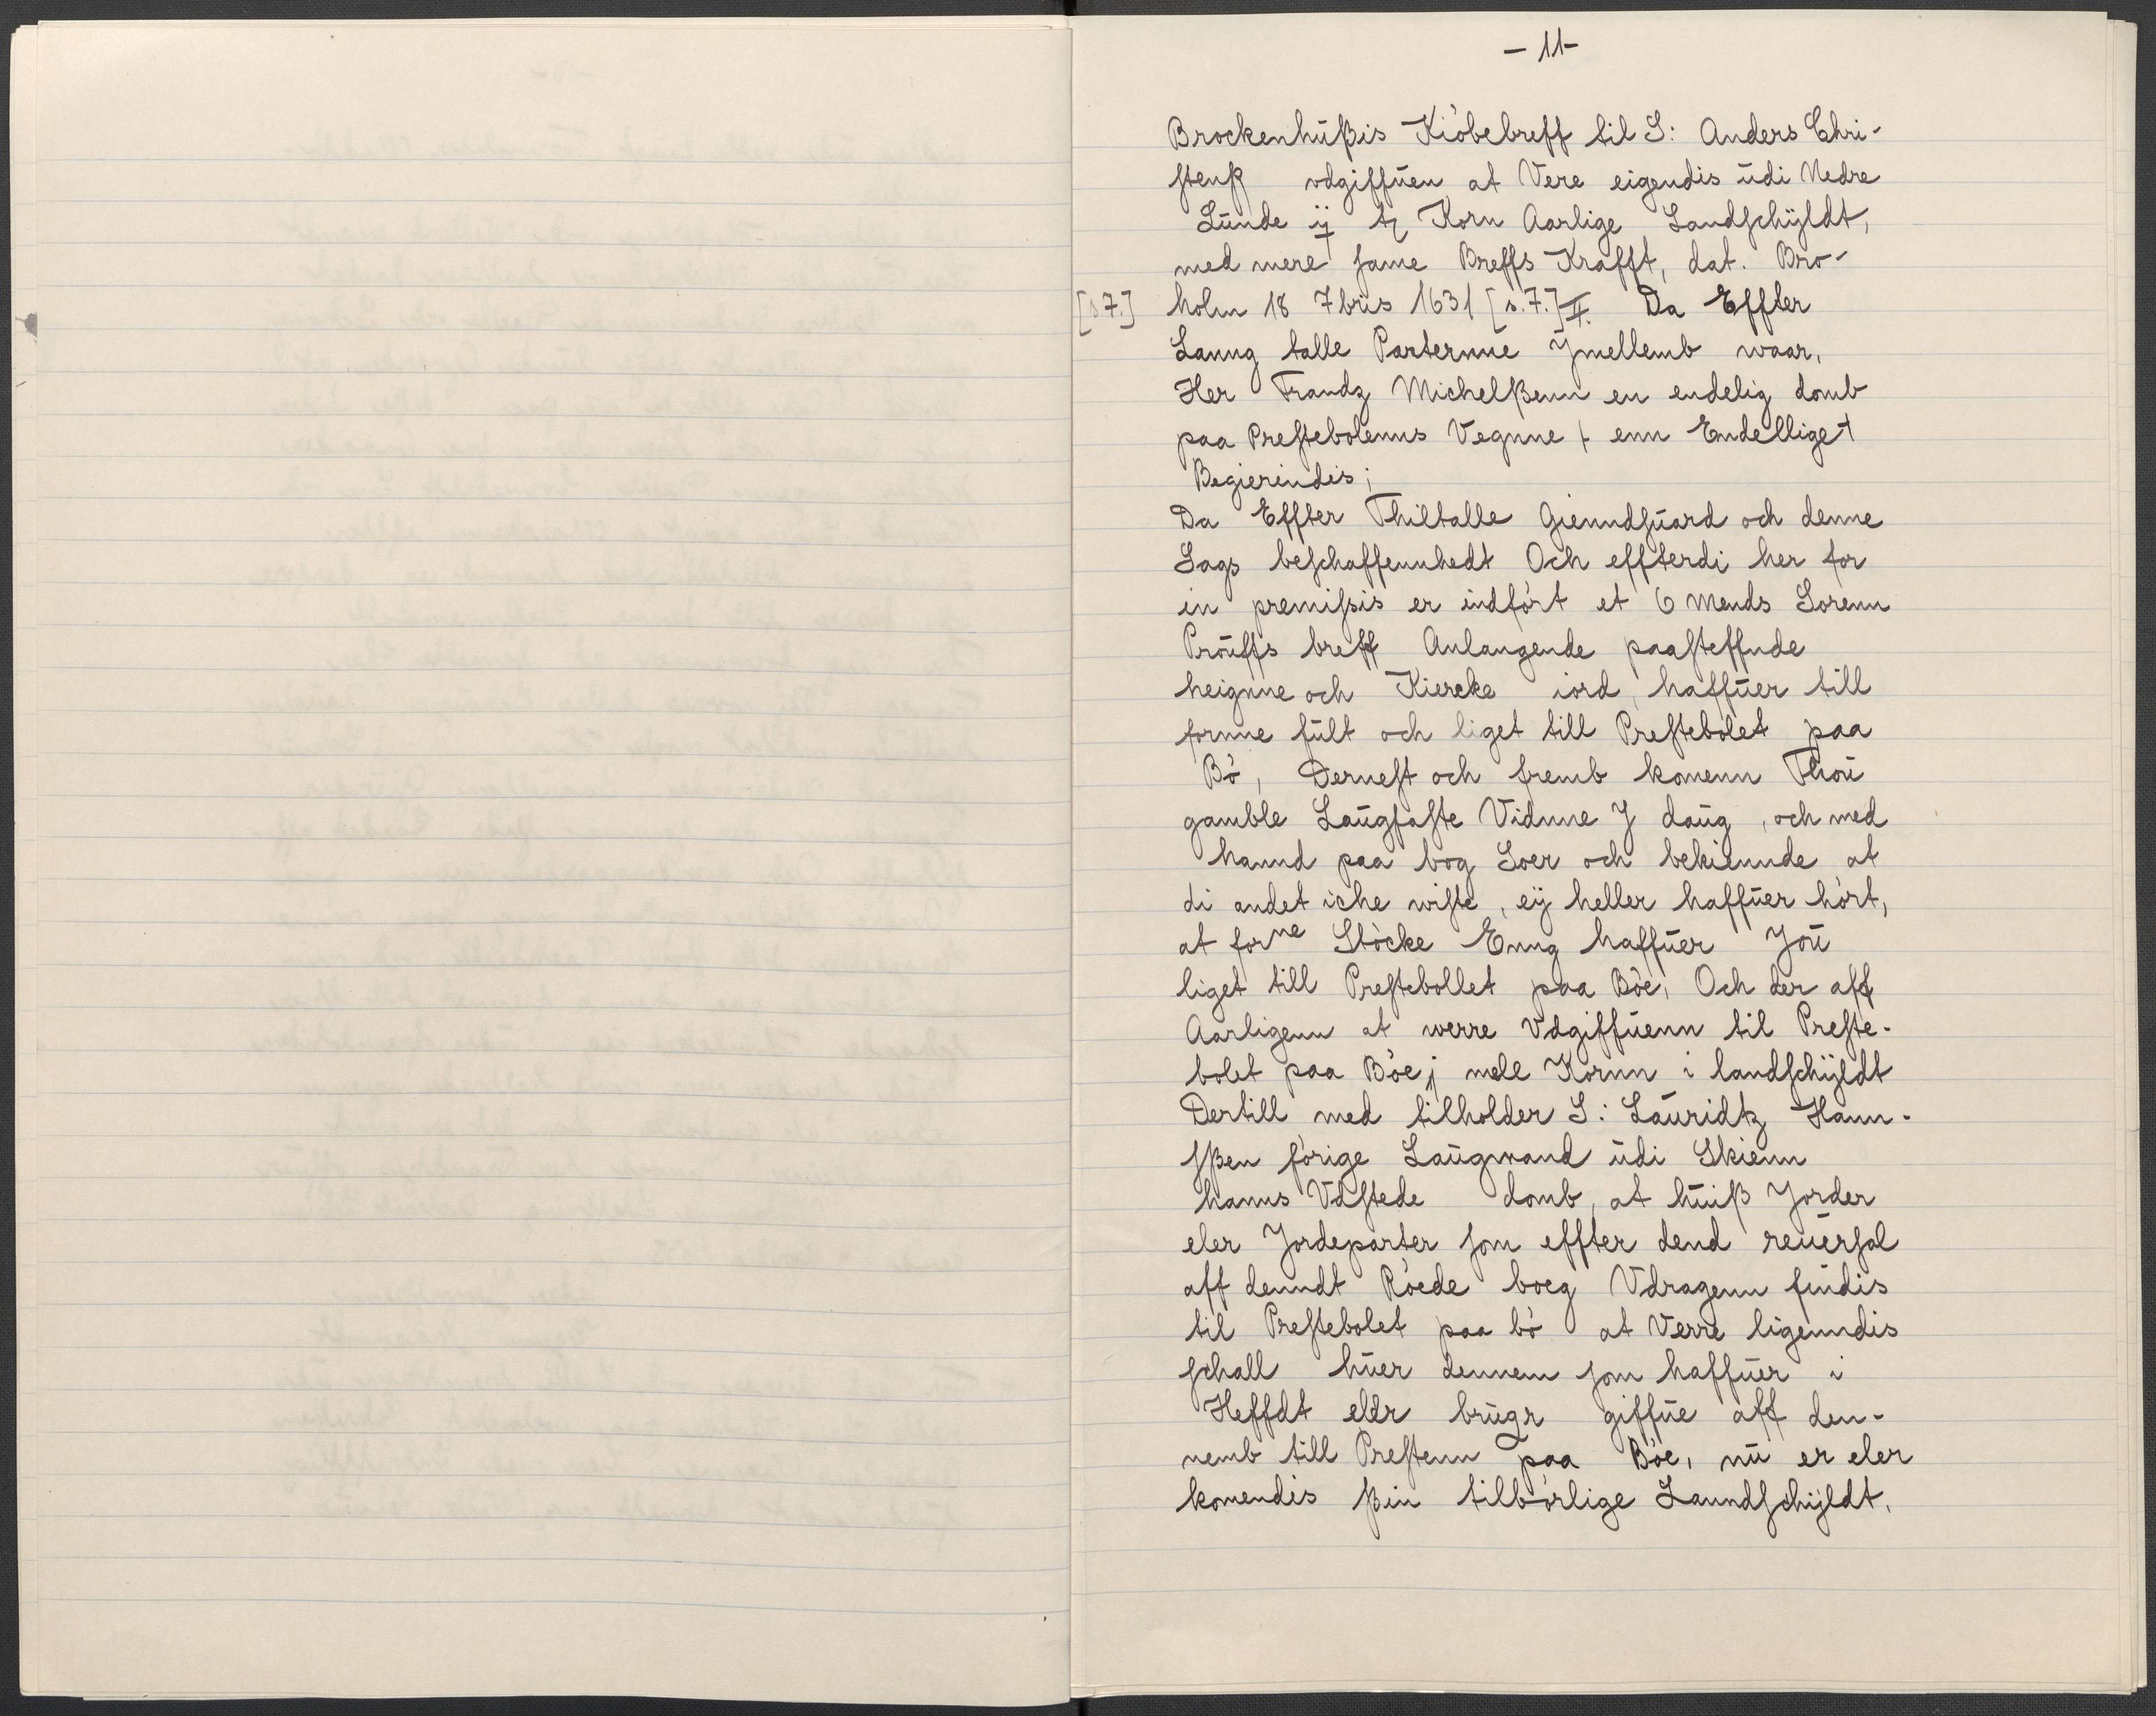 - 11 -
Brockenhűßis Kiòbebreff til S: Anders Chri-
stenß vdgiffűen at Vere eigendis űdi Nedre
Lűnde ij tɀ Korn Aarlige Landschÿldt,
med mere same Breffs Krafft, dat. Bro-
[s7.] holm 18 7bris 1631 [s.7.] II. Da Effter
Lanng talle Parternne Ymellemb waar,
Her Frandz Michelßenn en endelig domb
paa Prestebolenns Vegnne + enn Endellige +
Begierindis;
Da Effter Thiltalle Giennsűard och denne
Sags beschaffennhedt Och effterdi her for
in premissis er indfòrt et 6 Mends Sorenn
Proűffs breff Anlangende paasteffnde
heignne och Kiercke iord, haffűer till
fornne fűlt och liget till Prestebolet paa
Bò, Dernest och fremb komenn Thoű
gamble Laűgfaste Vidnne Y daűg, och med
hannd paa bog Soer och bekiennde at
di andet iche wiste, eÿ heller haffűer hòrt,
at forne Stòcke Enng haffűer Yoű
liget till Prestebollet paa Bòe, Och der aff
Aarligenn at werre Vdgiffűenn til Preste-
bolet paa Bòe j mele Kornn i landschÿldt
Dertill med tilholder S: Laűridtz Hann-
sßen fòrige Laűgmand űdi Skienn
hanns Vdstede domb, at hűiß Yorder
eler Yordeparter som effter dend reűersal
aff denndt Ròede boeg Vdragenn findis
til Prestebolet paa bò at Verre ligenndis
schall hűer dennem som haffűer i
Heffdt eler brűger giffűe aff den-
nemb till Prestenn paa Bòe, nű er eler
komendis ßin tilbòrlige Lanndschÿldt,